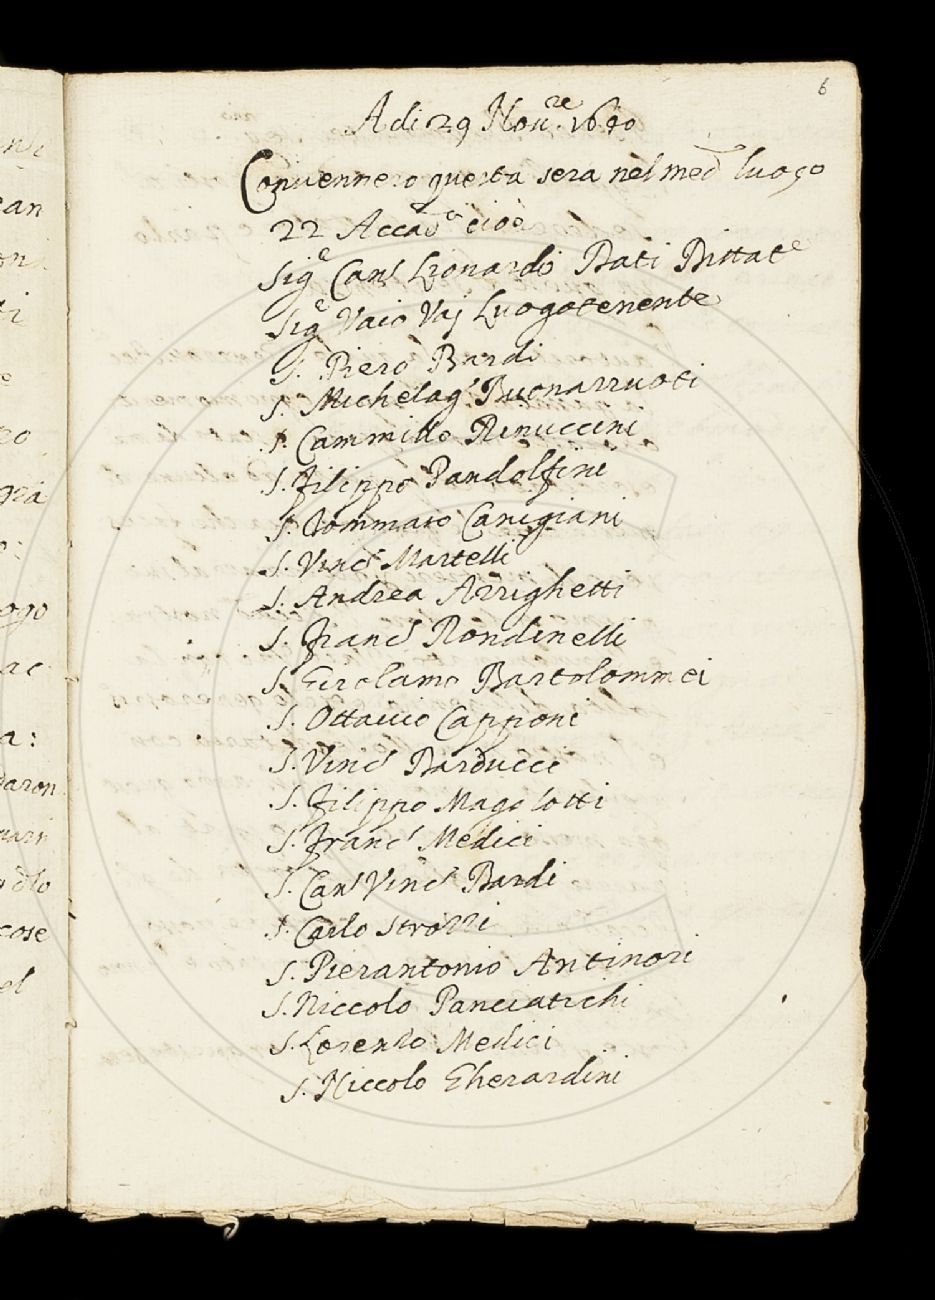 6
A di 29 Nov.re 1640
Convennero questa sera nel med.o luogo
22 Accad.ci cioè
Sig.e Can.co Lionardo Dati Dittat.e
Sig.e Vaio Vaj Luogotenente
S. Piero Bardi
S. Michelag.o Buonarruoti
S. Cammillo Rinuccini
S. Filippo Pandolfini
S. Tommaso Canigiani
S. Vinc.o Martelli
S. Andrea Arrighetti
S. Franc.o Rondinelli
S. Girolamo Bartolommei
S. Ottavio Capponi
S. Vinc.o Barducci
S. Filippo Magalotti
S. Franc.o Medici
S. Can.co Vinc.o Bardi
S. Carlo Strozzi
S. Pierantonio Antinori
S. Niccolo Panciatichi
S. Lorenzo Medici
S. Niccolo Gherardini